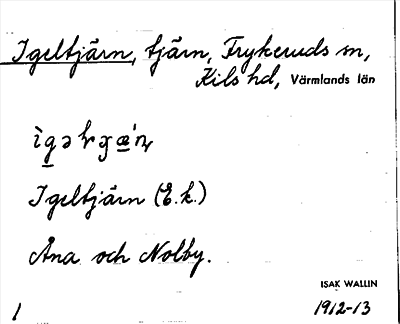 Igeltjärn, tjärn, Frykeruds sn,
Kils hd, Värmlands län
Igeltjärn (E.k.)
Åna och Nolby.
ISAK WALLIN
1 1912-13